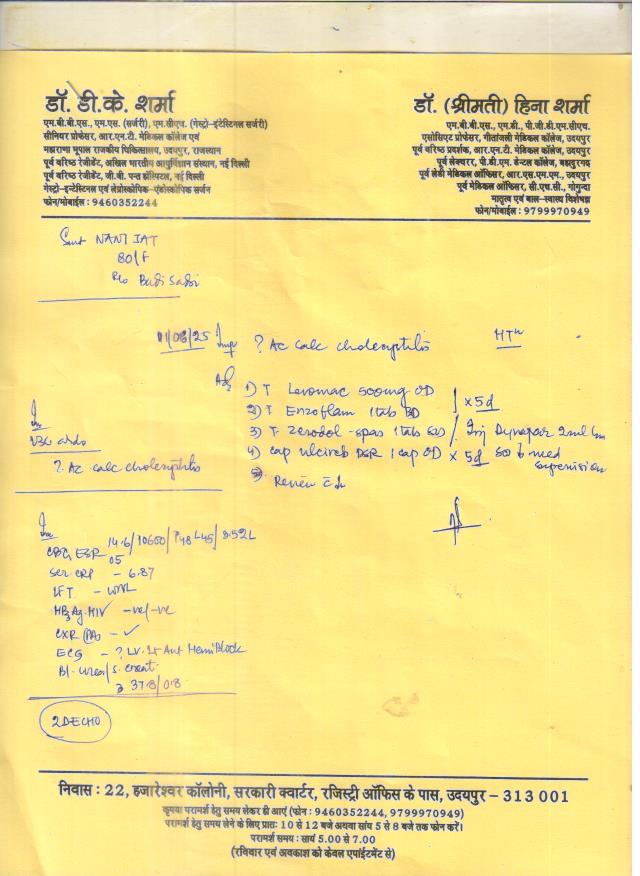 डॉ. डी.के. शर्मा
एम.बी.बी.एस., एम.एस. (सर्जरी), एम.सीएच. (गेस्ट्रो-इंटेस्टिनल सर्जरी)
सीनियर प्रोफेसर, आर.एन.टी. मेडिकल कॉलेज एवं
महाराणा भूपाल राजकीय चिकित्सालय, उदयपुर, राजस्थान
पूर्व वरिष्ठ रेजीडेंट, अखिल भारतीय आयुर्विज्ञान संस्थान, नई दिल्ली
पूर्व वरिष्ठ रेजीडेंट, जी.बी. पन्त हॉस्पिटल, नई दिल्ली
गेस्ट्रो-इन्टेस्टिनल एवं लेप्रोस्कोपिक-एंडोस्कोपिक सर्जन
फोन/मोबाईल : 9460352244
डॉ. (श्रीमती) हिना शर्मा
एम.बी.बी.एस., एम.डी., पी.जी.डी.एम.सीएच.
एसोसिएट प्रोफेसर, गीतांजली मेडिकल कॉलेज, उदयपुर
पूर्व वरिष्ठ प्रदर्शक, आर.एन.टी. मेडिकल कॉलेज, उदयपुर
पूर्व लेक्चरर, पी.डी.एम. डेन्टल कॉलेज, बहादुरगढ़
पूर्व लेडी मेडिकल ऑफिसर, आर.एस.एम.एम., उदयपुर
पूर्व मेडिकल ऑफिसर, सी.एच.सी., गोगुन्दा
मातृत्व एवं बाल-स्वास्थ्य विशेषज्ञ
फोन/मोबाईल : 9799970949
Smt NANI JAT
80/F
R/o Badi Sadri
01/08/25 Imp ? Ac calc cholecystitis HTn
Adv 1) T Levomac 500mg OD
2) T Enzoflam 1tab BD x 5d
3) T Zerodol-spas 1tab SOS / Inj Dynapar 2ml im
4) cap DSR 1 cap OD x 5d SOS med supervision
5) Review
Inv
USG abdo
? Ac calc cholecystitis
Inv
CBC, ESR 14.6/10600/P48 L45/3.52L
05
Ser CRP - 6.87
LFT - WNL
HBsAg. HIV -ve/-ve
CXR (PA) - ✓
ECG - ? LV. Lt Ant HemiBlock
Bl. urea/s. creat
37.8/0.8
2DECHO
निवास : 22, हजारेश्वर कॉलोनी, सरकारी क्वार्टर, रजिस्ट्री ऑफिस के पास, उदयपुर – 313 001
कृपया परामर्श हेतु समय लेकर ही आएं (फोन : 9460352244, 9799970949)
परामर्श हेतु समय लेने के लिए प्रातः 10 से 12 बजे अथवा सांय 5 से 8 बजे तक फोन करें।
परामर्श समय : सायं 5.00 से 7.00
(रविवार एवं अवकाश को केवल एपाईंटमेंट से)